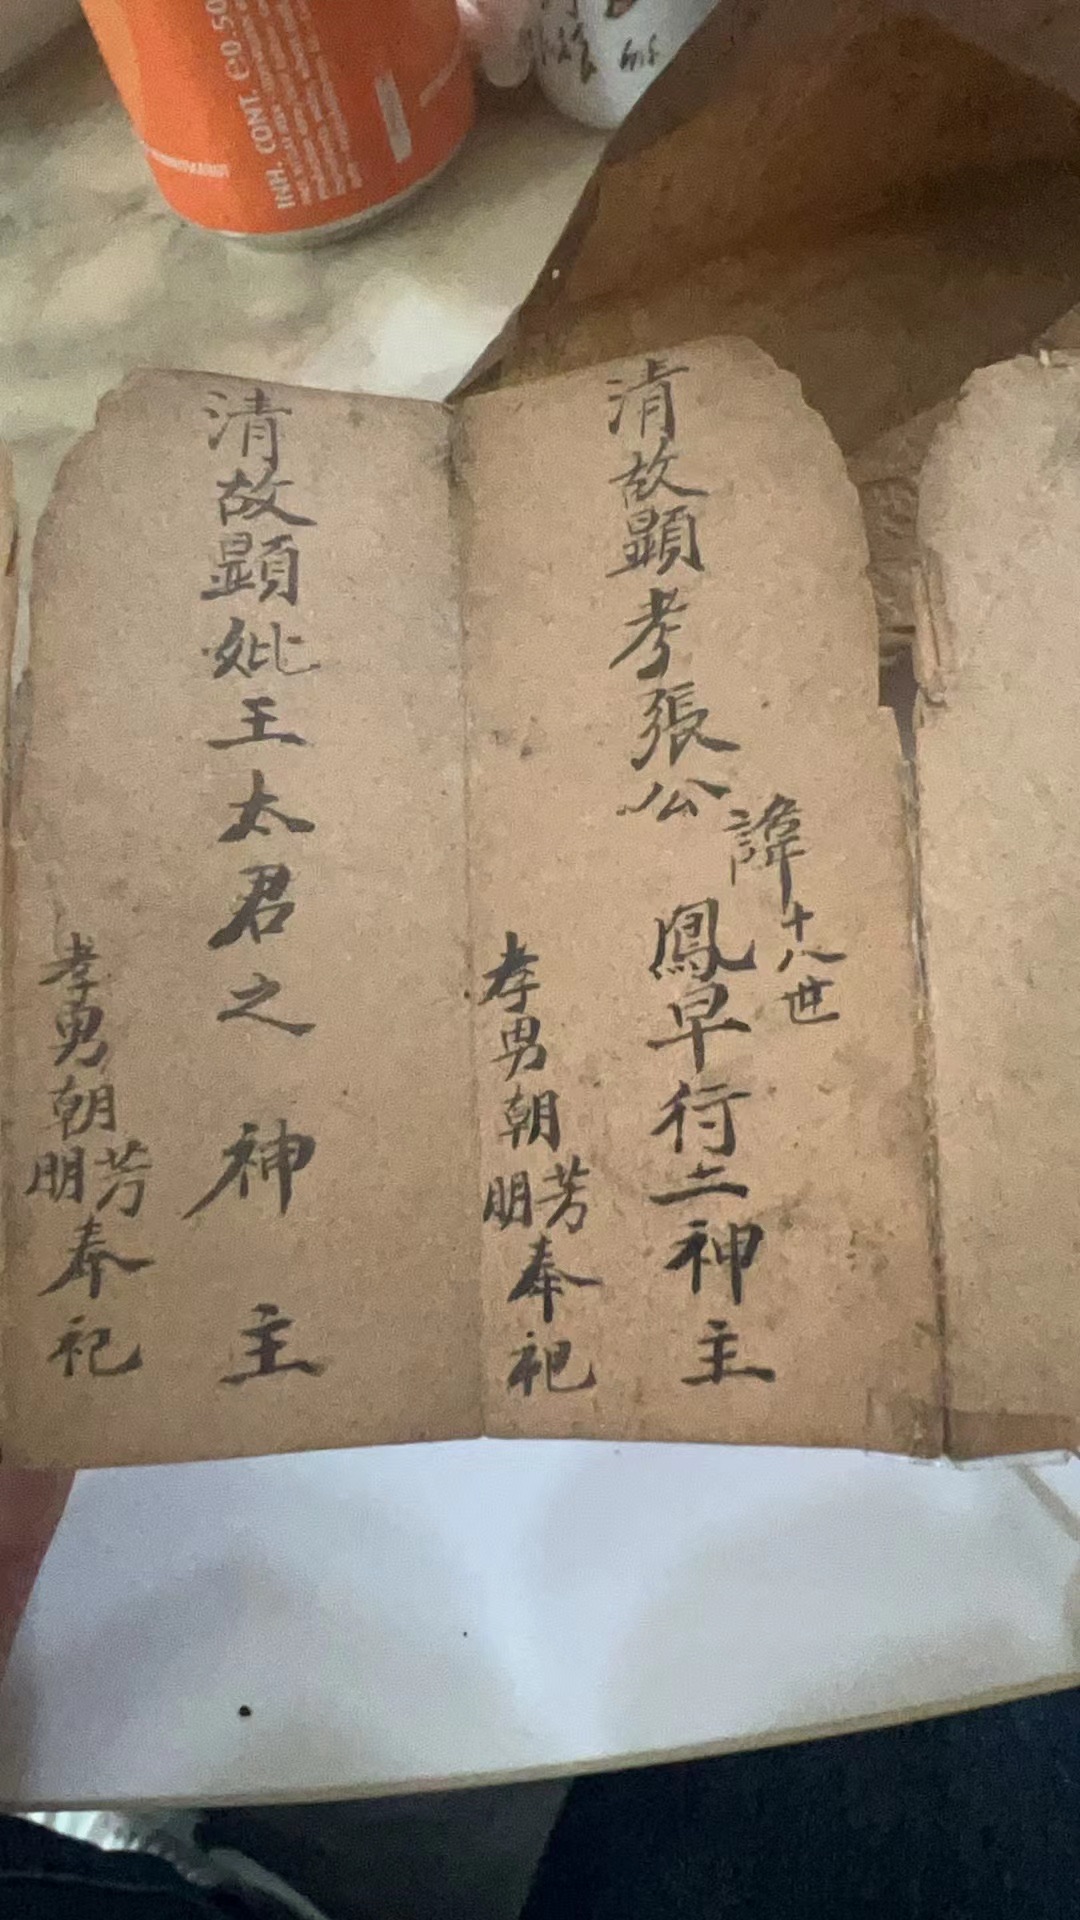 清故顯考張公
諱十八世
鳳早行二神主
孝男朝
芳
明
奉祀
清故顯妣王太君之神主
孝男朝
芳
明
奉祀
INH. CONT. ℮0.50